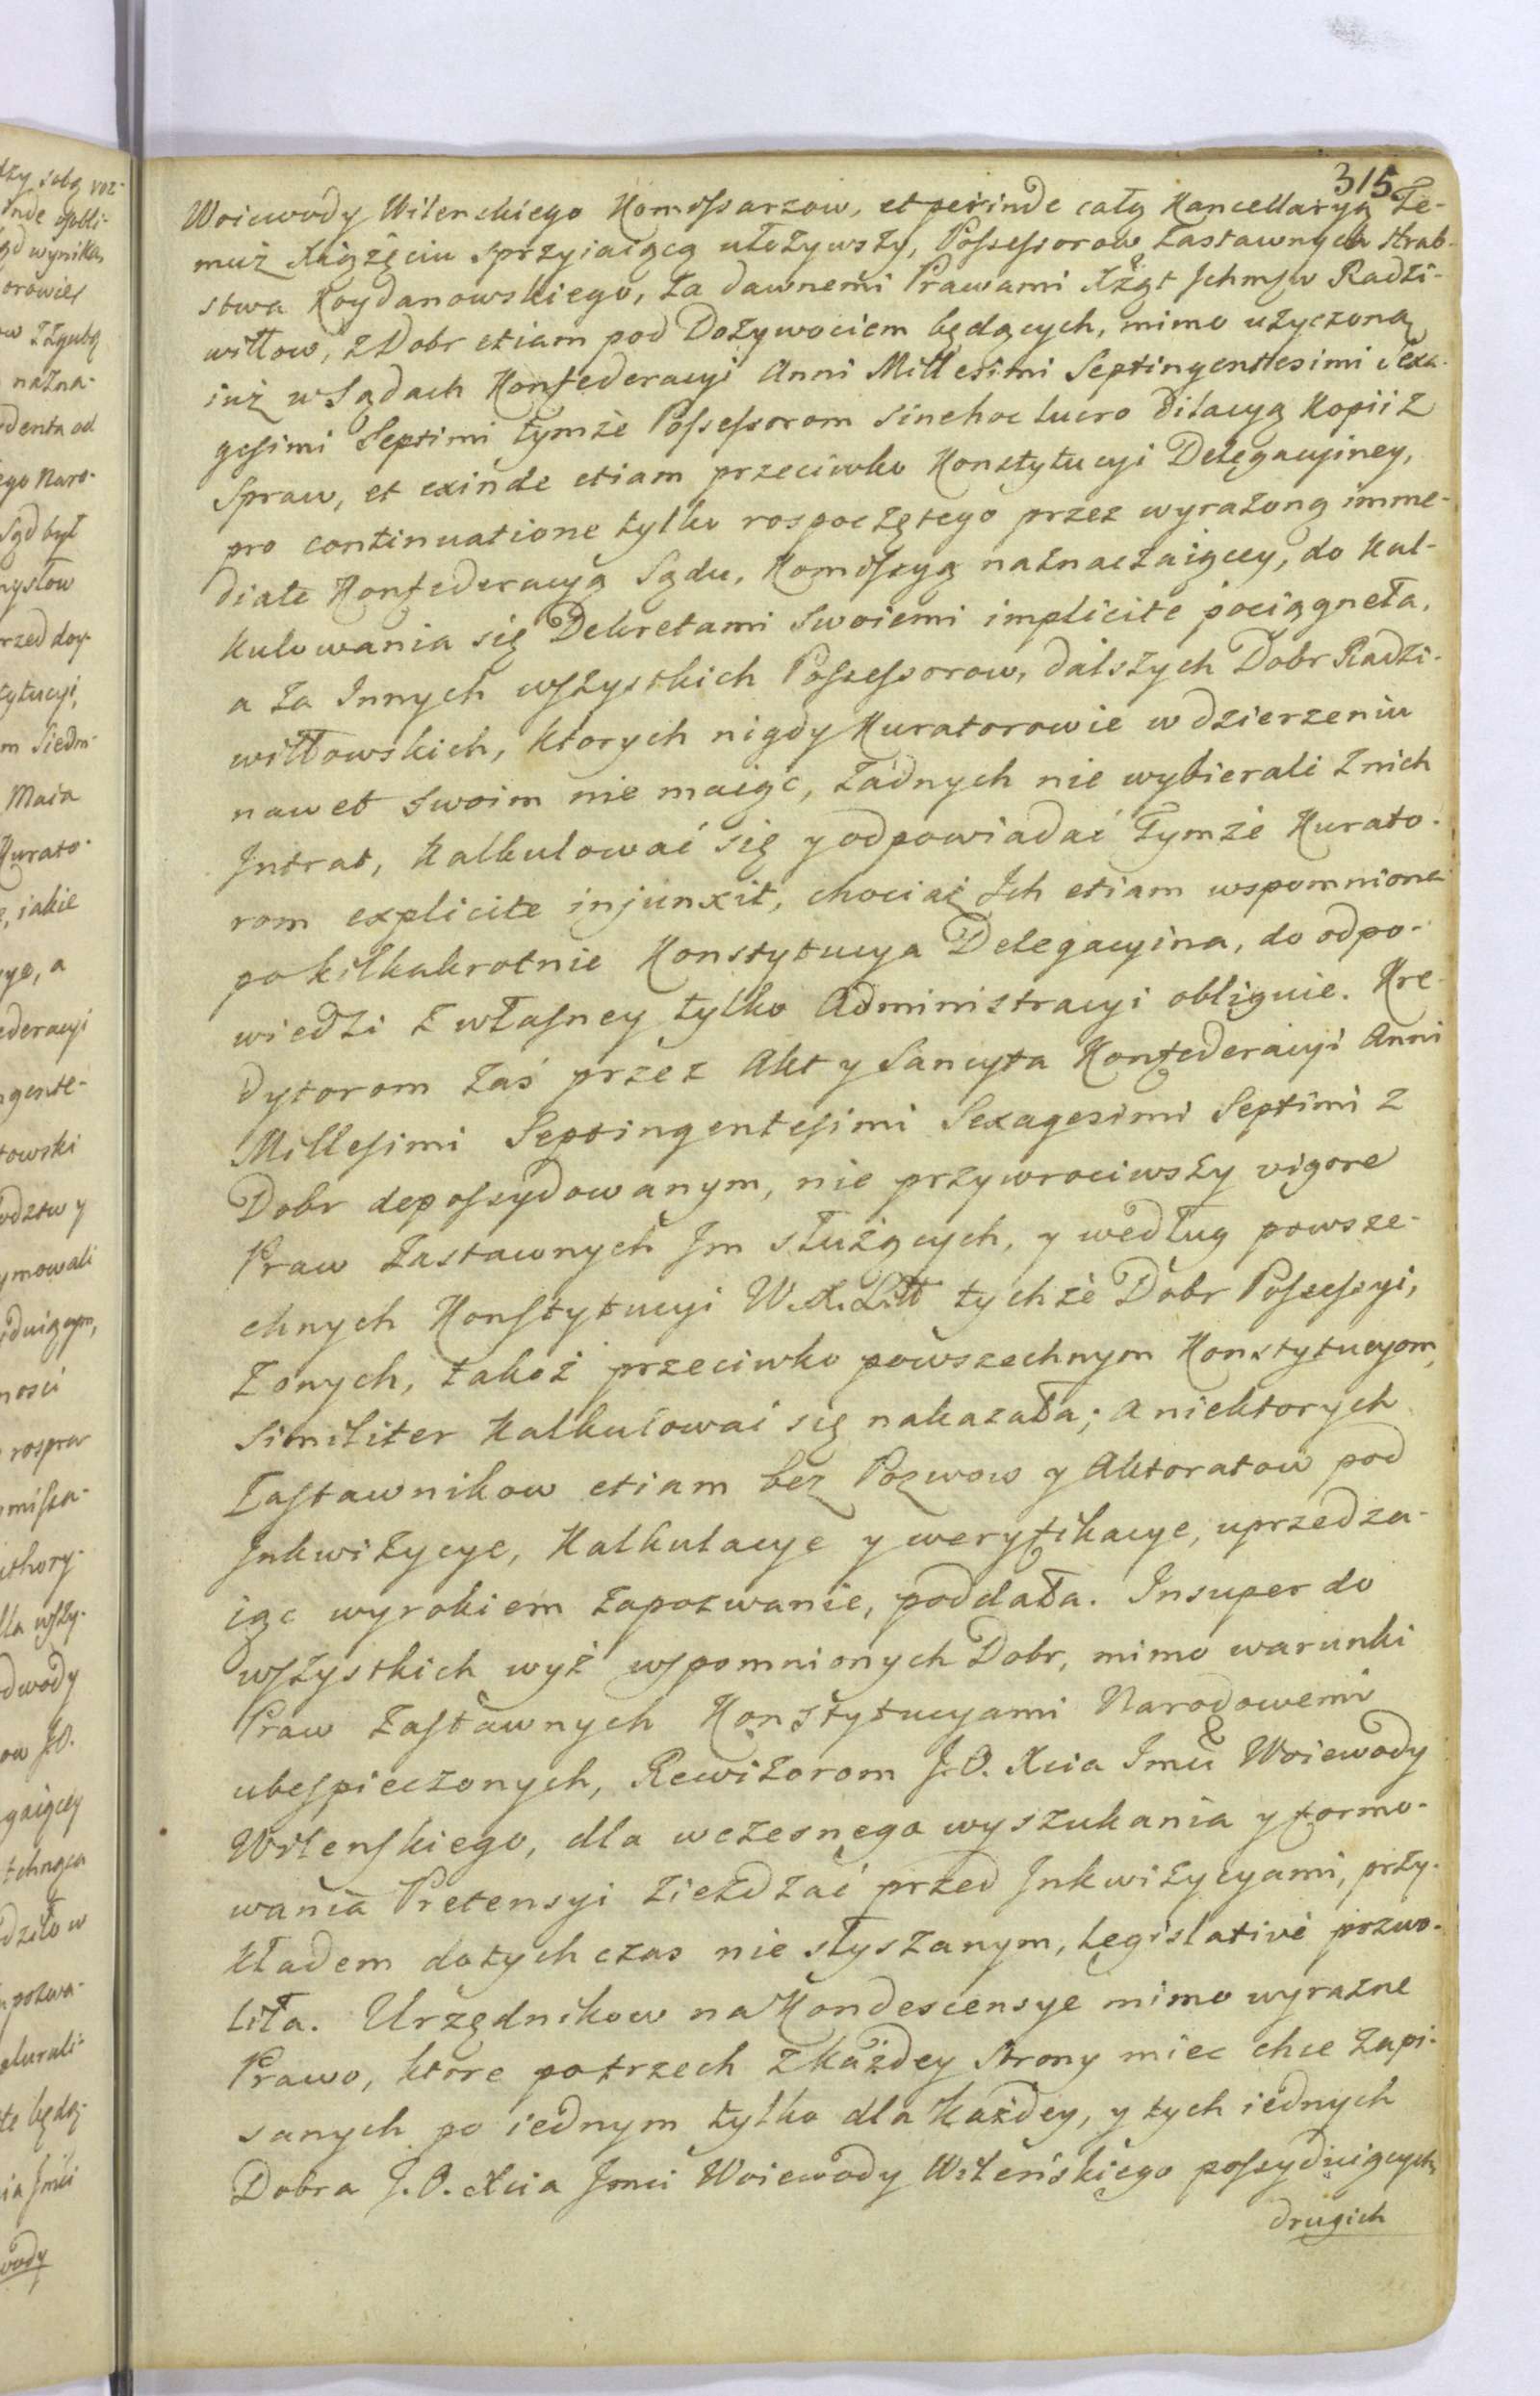 315
Woiewody Wilenskiego Kommissarzow, et perinde całą Kancellaryą Te-
muż Xiążęciu sprzyiaiącą ułożywszy, Possessorow Zastawnych Hrab-
stwa Koydanowskiego, za dawnemi Prawami Xżąt Ichmsw Radzi-
wiłłow, z Dobr etiam pod Dożywociem będących, mimo użyczoną
iuż w Sądach Konfederacyi Anni Millesimi Septingentesimi Sexa-
gesimi Septimi tymże Possessorom sine hoc lucro dilacyą Kopii z
Spraw, et exinde etiam przeciwko Konstytucyi Delegacyiney,
pro continuatione tylko rospoczętego przez wyrażoną imme-
diate Konfederacyą Sądu, Komissyą naznaczaiącey, do Kal-
kulowania się Dekretami Swoiemi implicite pociągneła,
a za Innych wszystkich Possessorow, dalszych Dobr Radzi-
wiłłowskich, ktorych nigdy Kuratorowie w dzierzeniu
nawet swoim nie maiąc, żadnych nie wybierali z nich
Intrat, Kalkulować się y odpowiadać Tymże Kurato-
rom explicite injunxit, chociaż Ich etiam wspomniona
po kilkakrotnie Konstytucya Delegacyina, do odpo-
wiedzi z własney tylko Administracyi obliguie. Kre-
dytorom zaś przez Akt y Sancyta Konfederacyi Anni
Millesimi Septingentesimi Sexagesimi Septimi z
Dobr depossydowanym, nie przywrociwszy vigore
Praw Zastawnych Im służących, y według powsze-
chnych Konstytucyi W.X.Litt tychże Dobr Possessyi,
z onych, takoż przeciwko powszechnym Konstytucyom,
similiter Kalkulować się nakazała; a niektorych
Zastawnikow etiam bez Pozwow y Aktoratow pod
Inkwizycye, Kalkulacye y weryfikacye, uprzedza-
iąc wyrokiem zapozwanie, poddała. Insuper do
wszystkich wyż wspomnionych Dobr, mimo warunki
Praw Zastawnych Konstytucyami Narodowemi
ubespieczonych, Rewizorom J.O. Xcia Imci Woiewody
Wilenskiego, dla wczesnego wyszukania y formo-
wania Pretensyi zieżdzać przed Inkwizycyami, przy-
kładem dotychczas nie słyszanym, legislative pozwo-
liła. Urzędnikow na Kondescensye mimo wyrazne
Prawo, ktore po trzech z każdey strony miec chce zapi-
sanych po iednym tylko dla każdey, y tych iednych
Dobra J.O. Xcia Jmci Woiewody Wileńskiego possyduiących,
drugich